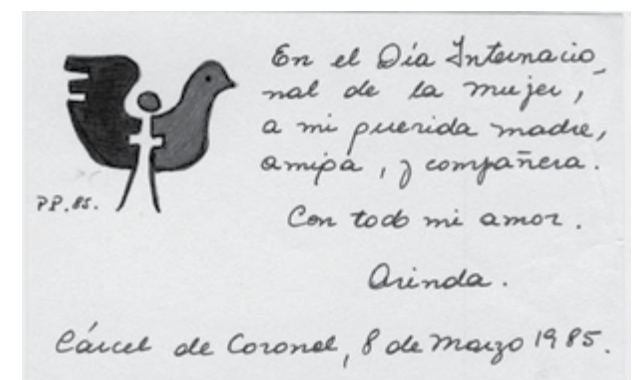 En el Día Internacio_
nal de la mujer,
a mi querida madre,
amiga, y compañera.
P.P.85.
Con todo mi amor.
Arinda.
Cárcel de Coronel, 8 de Marzo 1985.